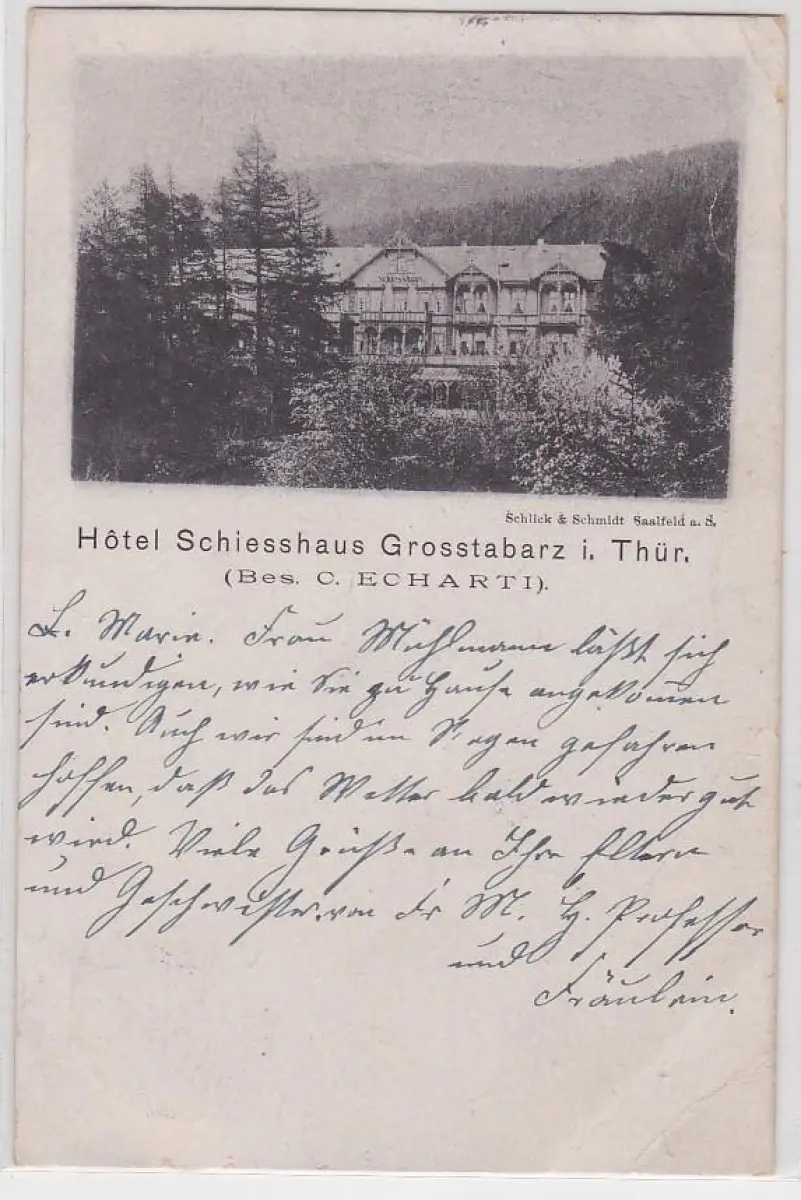 Schiesshaus
Schlick & Schmidt Saalfeld a. S.
Hôtel Schiesshaus Grosstabarz i. Thür.
(Bes. C. ECHARTI).
L. Marie. Frau Mühlmann läßt sich
erkundigen, wie Sie zu Hause angekomen
sind. Auch wir sind im Regen gefahren
hoffen, daß das Wetter bald wieder gut
wird. Viele Grüße an Ihre Eltern
und Geschwister, von Fr M. H. Professor
und
Fräulein.